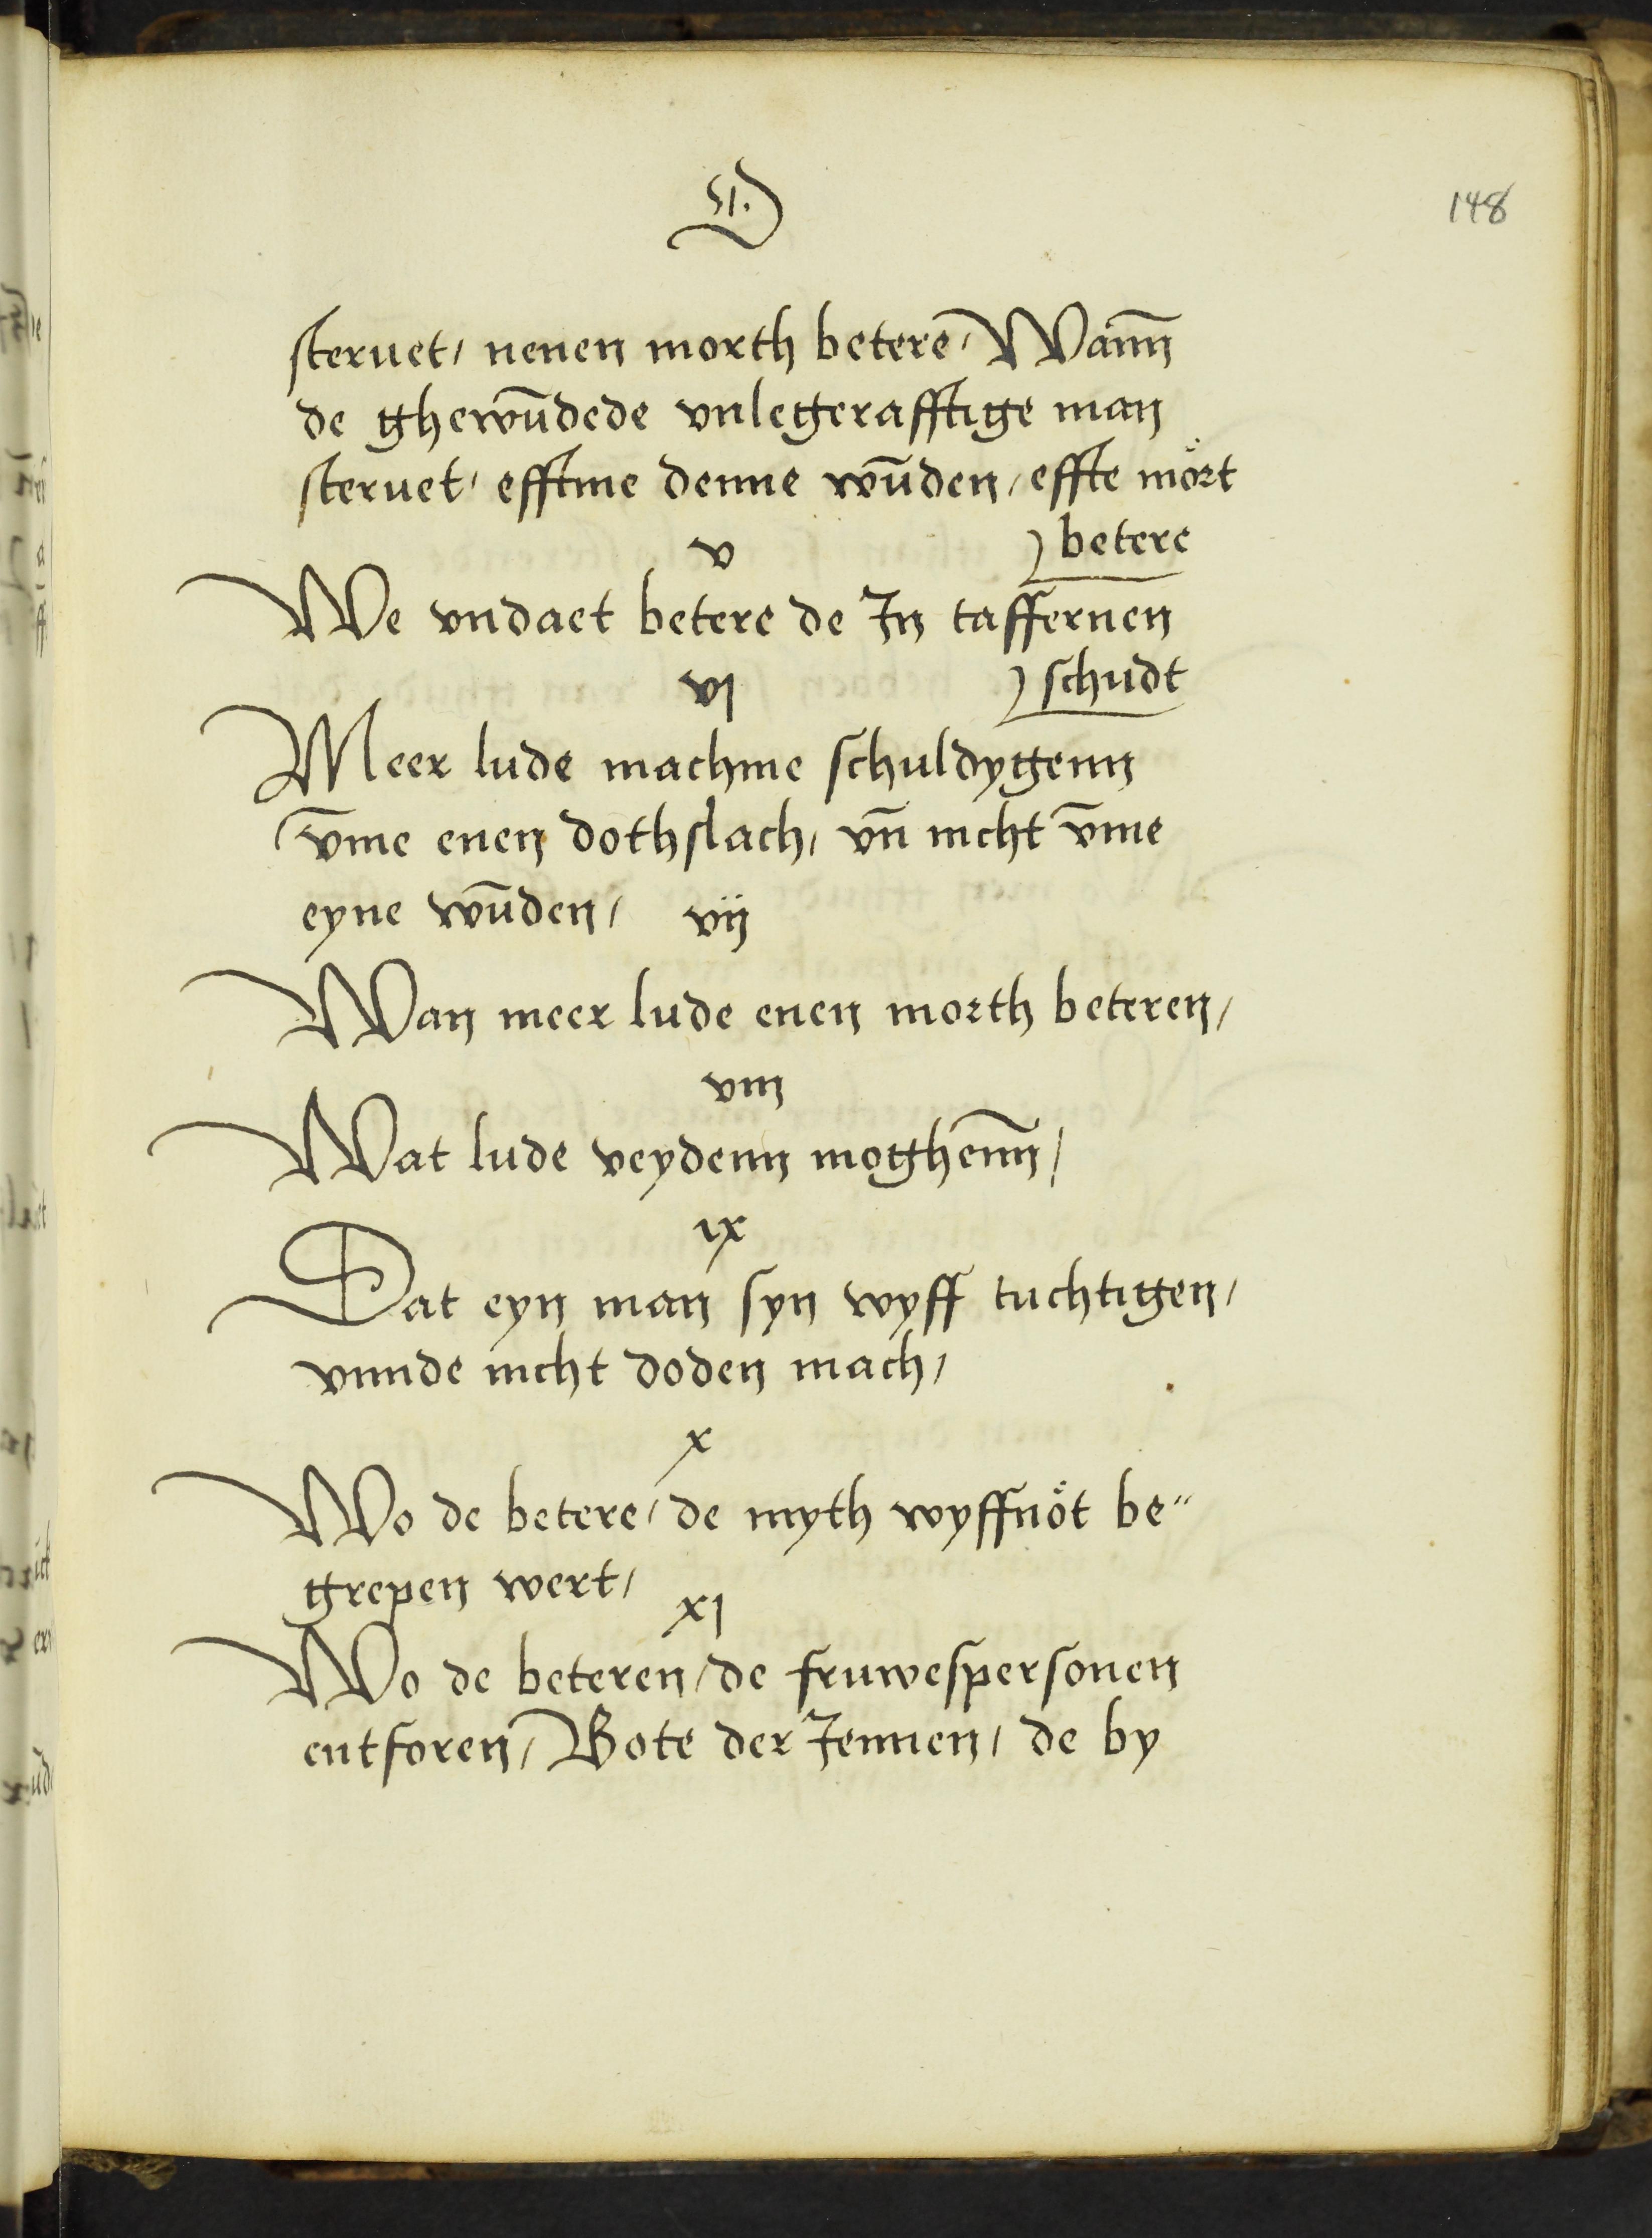 148
steruet, nenen morth beterē, Wan̄n
de ghewūdede vnlegerafftige man
steruet, efftme denne wūden, effte mört
betere
v
We vndaet betere de In taffernen
schudt
vi
Meer lude machme schuldygenn
v̄me enen dothslach, vn̄ nicht v̄me
eyne wūden,
vij
Wan meer lude enen morth beteren,
viij
Wat lude veydenn moghen̄n,
ix
Dat eyn man syn wyff tuchtigen,
vnnde nicht doden mach,
x
Wo de betere, de myth wyffnöt be"
grepen wert,
xi
Wo de beteren, de fruwespersonen
entforen, Bote der Jennen, de by